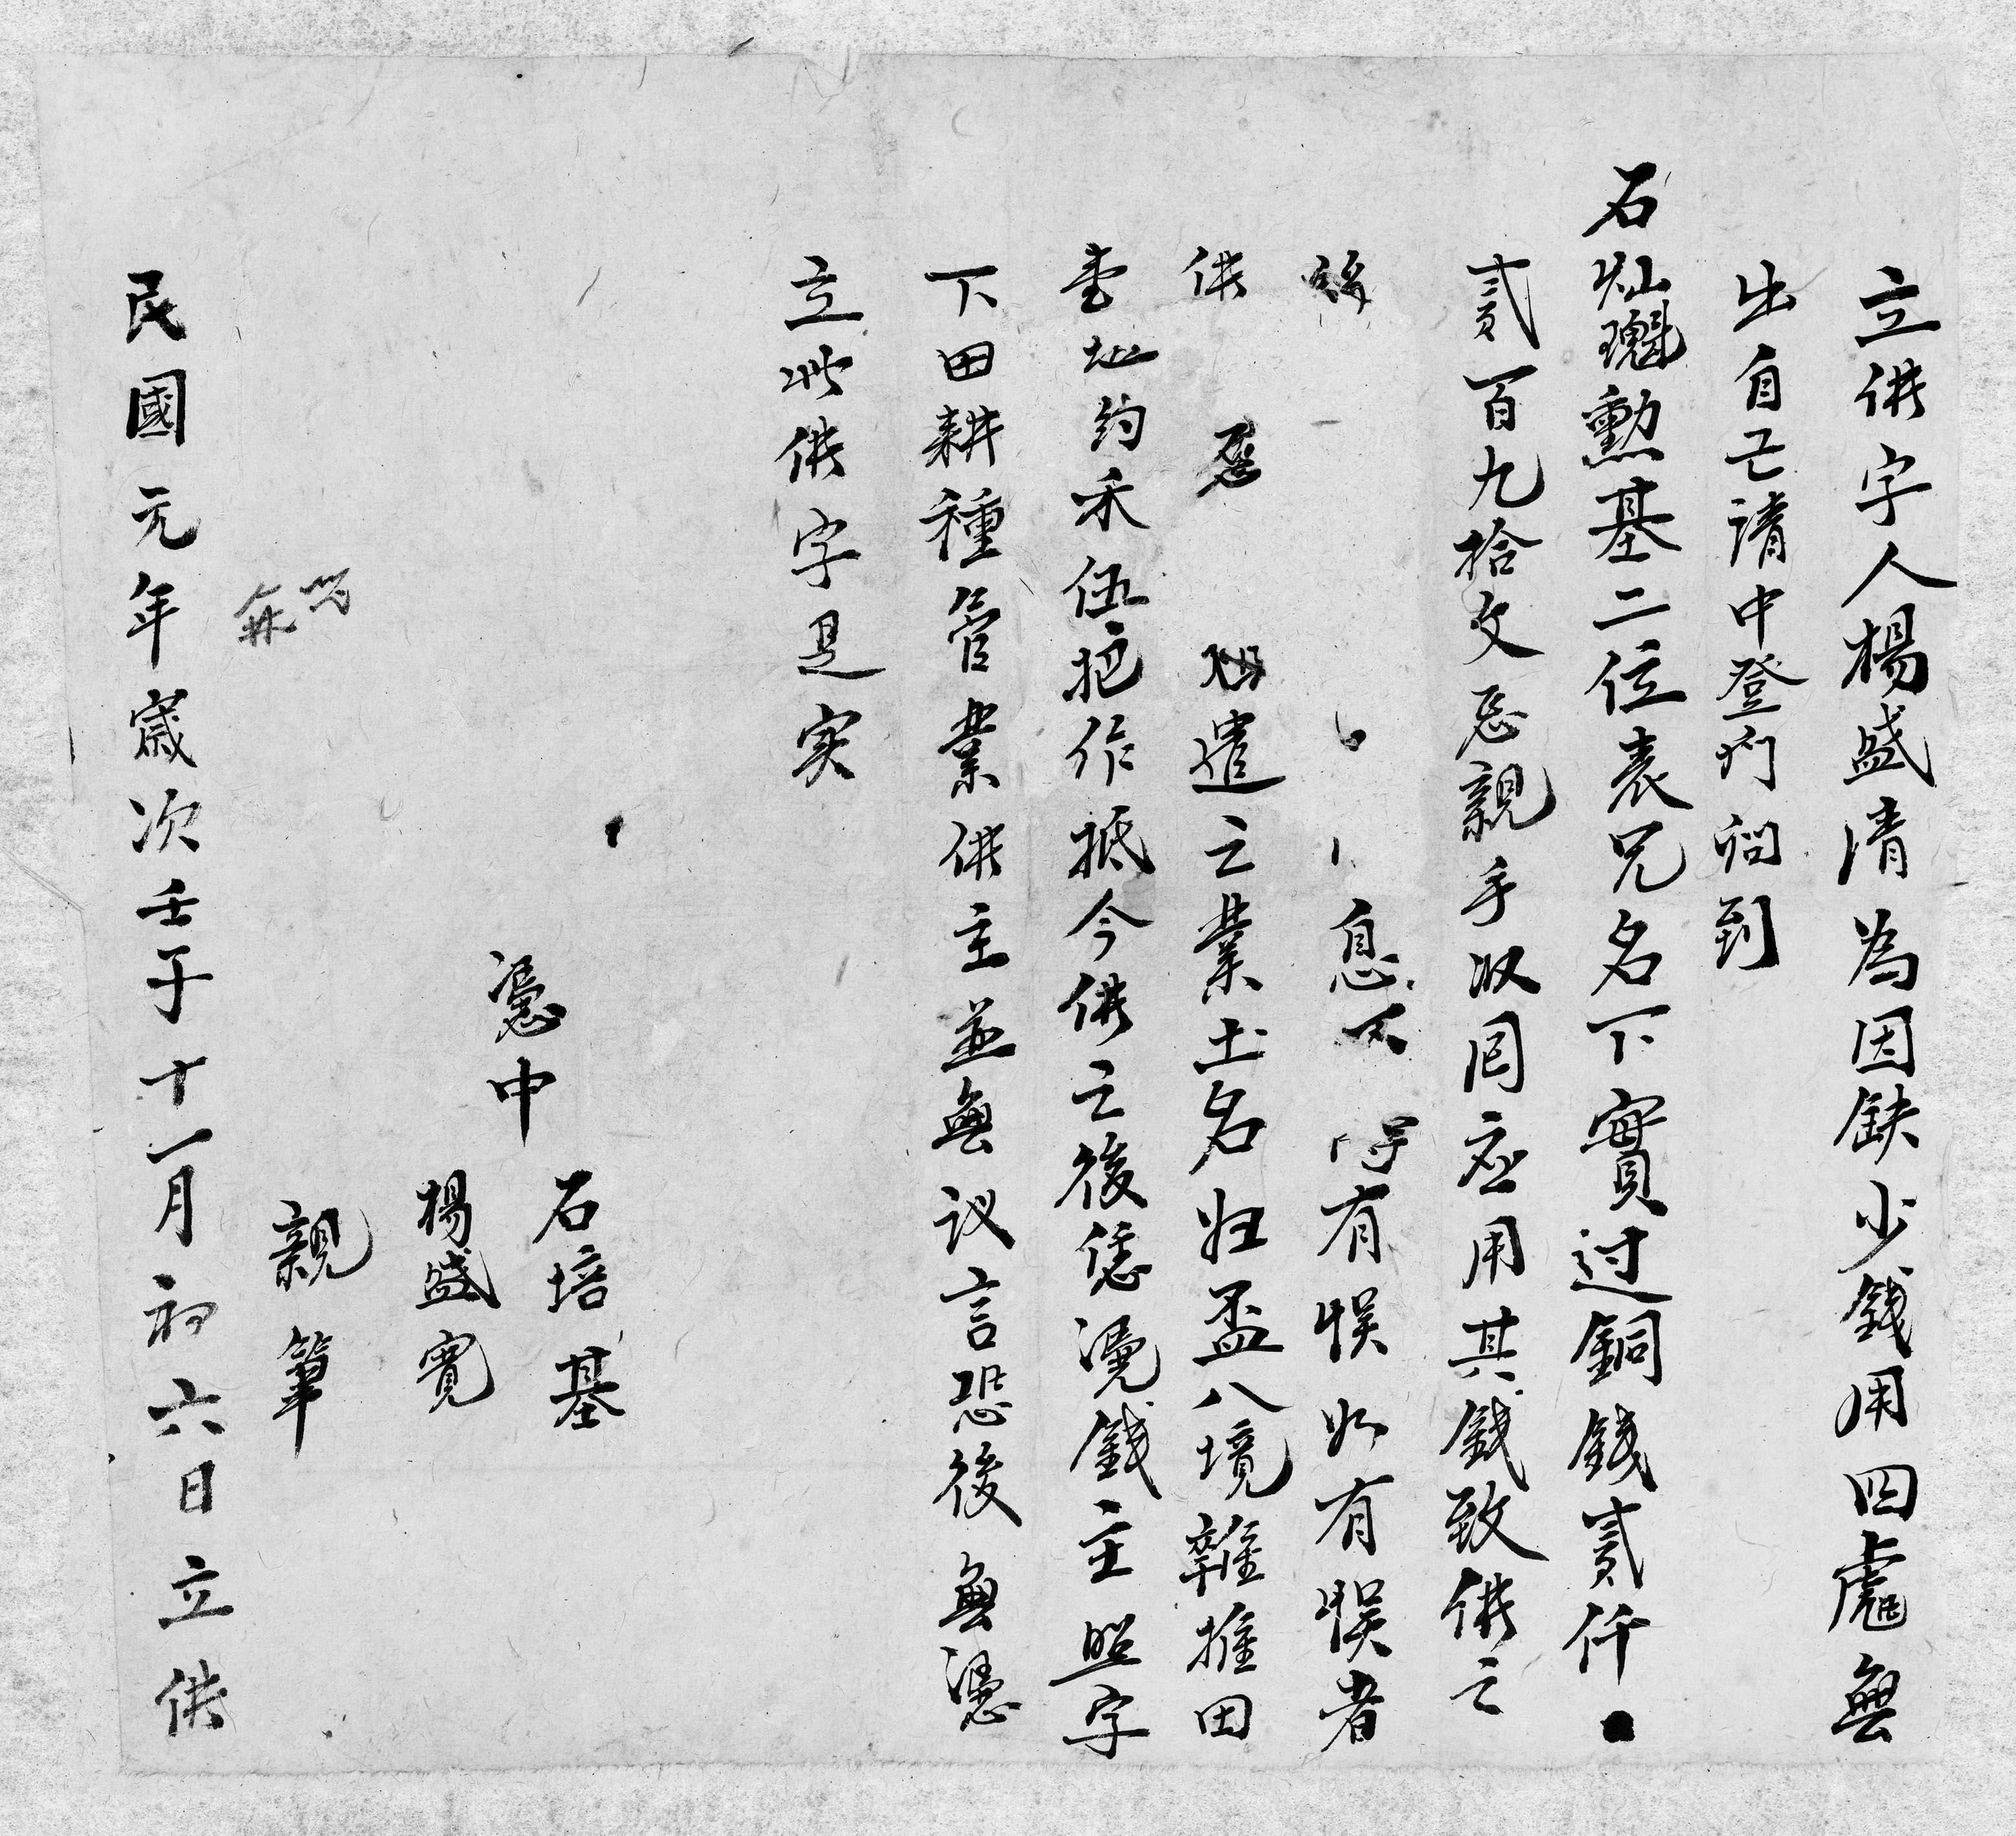 立供字人楊盛清為因缺少錢用四處無
出自己請中登門问到
石灿魁勳基二位表兄名下實过銅錢貳仟
貳百九拾文恁親手収回应用其錢致供之
後息不得有悮如有悮者
供恁祖遺之業土名归盃八境雜推田
壹坵約禾伍把作抵今供之後恁憑錢主照字
下田耕種管業供主並無议言恐後無憑
立此供字是实
憑中
石培基
楊盛寬
親筆
民國元年歲次壬子十一月初六日立供